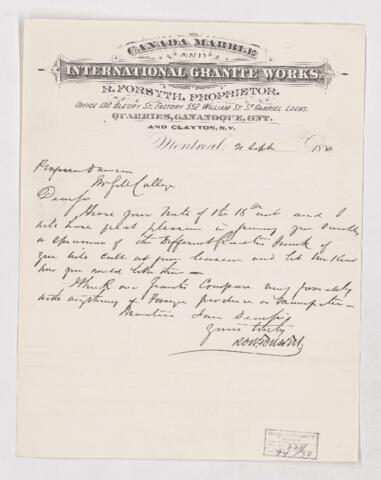 CANADA MARBLE
AND
INTERNATIONAL GRANITE WORKS.
R. FORSYTH, PROPRIETOR.
OFFICE 130 BLEURY ST. FACTORY 552 WILLIAM ST. ST GABRIEL LOCKS.
QUARRIES, GANANOQUE, ONT.
AND CLAYTON, N.Y.
Montreal, 21 Sept 188
Professor Dawson
McGill College
Dear Sir
I have your Note of the 18th inst and I
will have great pleasure in giving you
a specimen of the Different Granites I work if
you will call at your leasure and let me know
how you would like them —
I think our Granites Compare very favorably
with anything of Foreign produce or
I am Dear Sir
Yours truly
Robt Forsyth